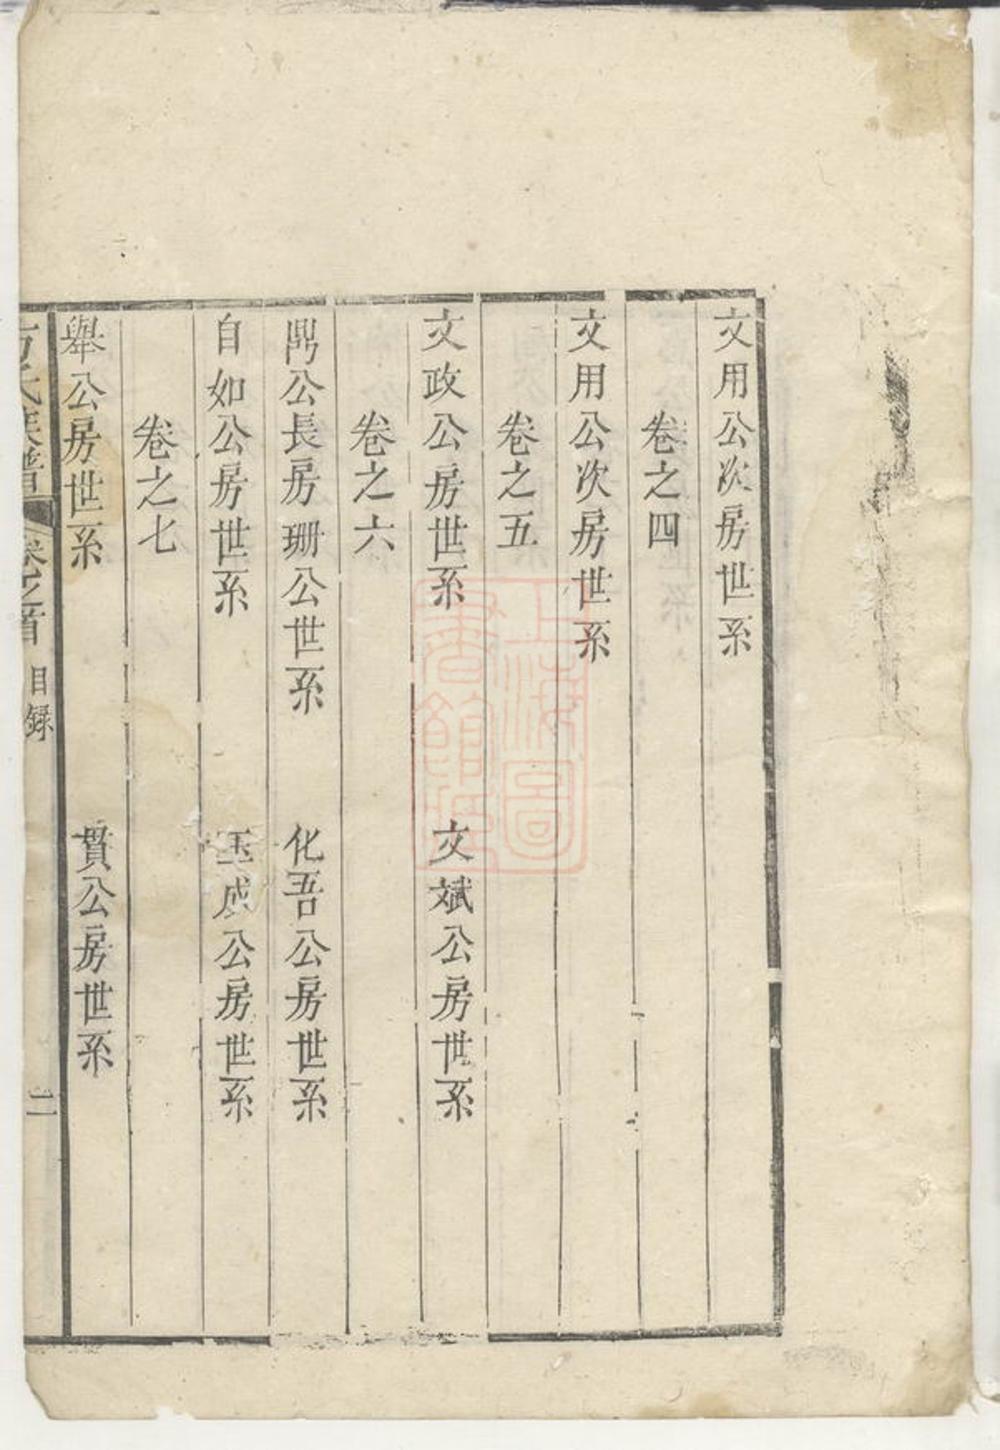 文用公次房世系
卷之四
文用公次房世系
卷之五
文政公房世系 文斌公房世系
卷之六
鼎公長房珊公世系 化吾公房世系
自如公房世系 玉成公房世系
卷之七
舉公房世系 貫公房世系
方氏族譜 卷之首 目録 二
上海圖書館藏